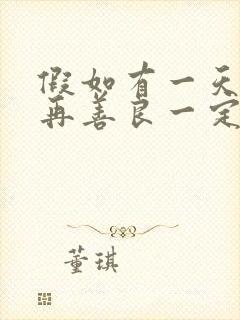 假如有一天
再善良一定
董琪